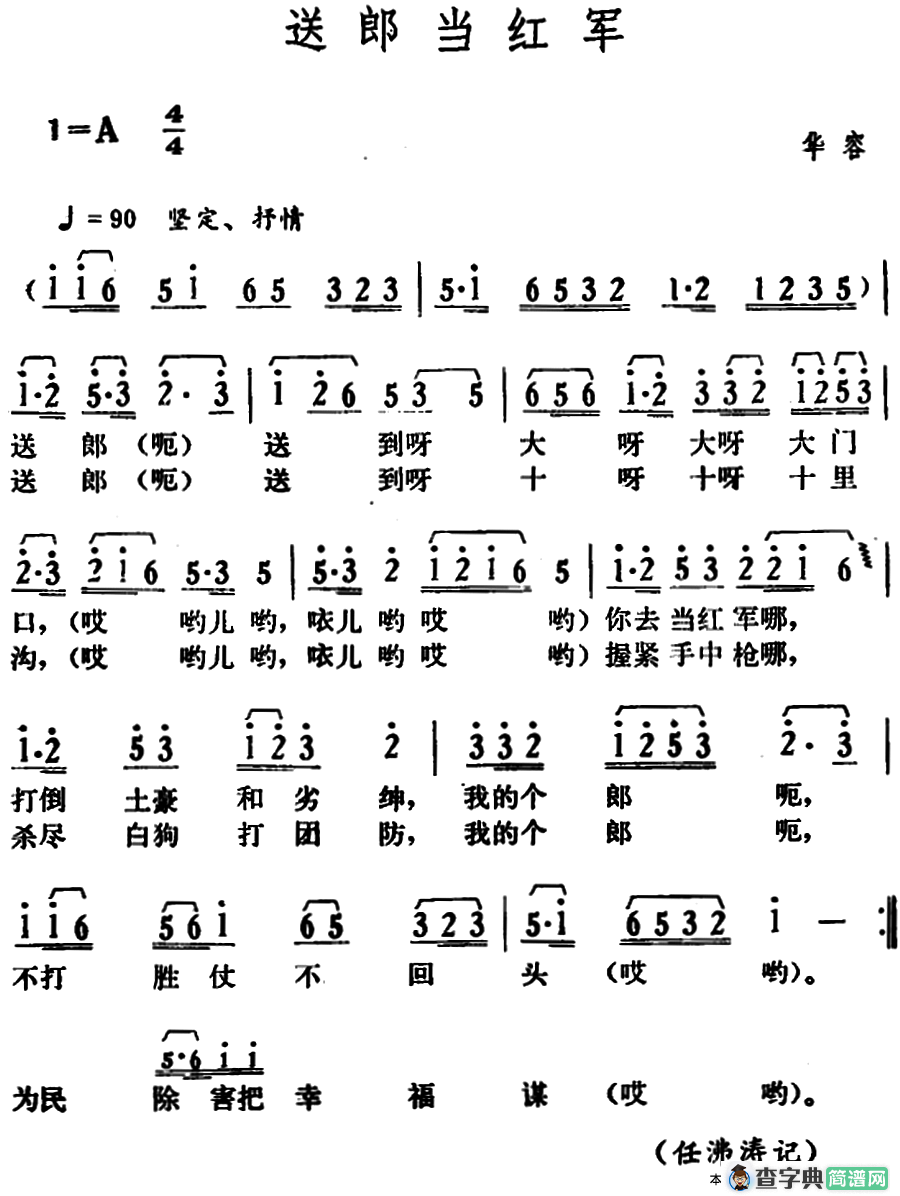 送郎当红军
1=A 4/4
华容
♩=90 坚定、抒情
(i i6 5i 65 323 | 5·i 6532 1·2 1235) |
i·2̇ 5̇·3̇ 2̇·3̇ | i 2̇6 53 5 | 656 i·2̇ 3̇3̇2̇ i2̇5̇3̇ |
送 郎(呃) 送 到呀 大 呀 大呀 大门
送 郎(呃) 送 到呀 十 呀 十呀 十里
2̇·3̇ 2̇i6 5·3 5 | 5̇·3̇ 2̇ i2̇i6 5 | i·2̇ 5̇3̇ 2̇ 2̇i 6
口,(哎 哟儿 哟,咴儿 哟 哎 哟)你去 当红 军哪,
沟,(哎 哟儿 哟,咴儿 哟 哎 哟)握紧 手中 枪哪,
i·2̇ 5̇3̇ i2̇3̇ 2̇ | 3̇3̇2̇ i2̇5̇3̇ 2̇·3̇ |
打倒 土豪 和 劣 绅,我的个 郎 呃,
杀尽 白狗 打 团 防,我的个 郎 呃,
i i6 56i 65 323 | 5·i 6532 i — :‖
不打 胜 仗 不 回 头 (哎 哟)。
5·6 i i
为民 除 害把 幸 福 谋 (哎 哟)。
(任沸涛记)
本 查字典简谱网